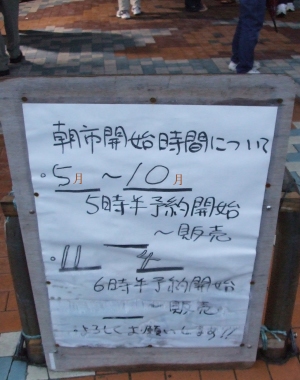 朝市開始時間について
。5月〜10月
5時半予約開始
〜販売
。11 — 4
6時半予約開始
〜販売
よろしくお願いします!!